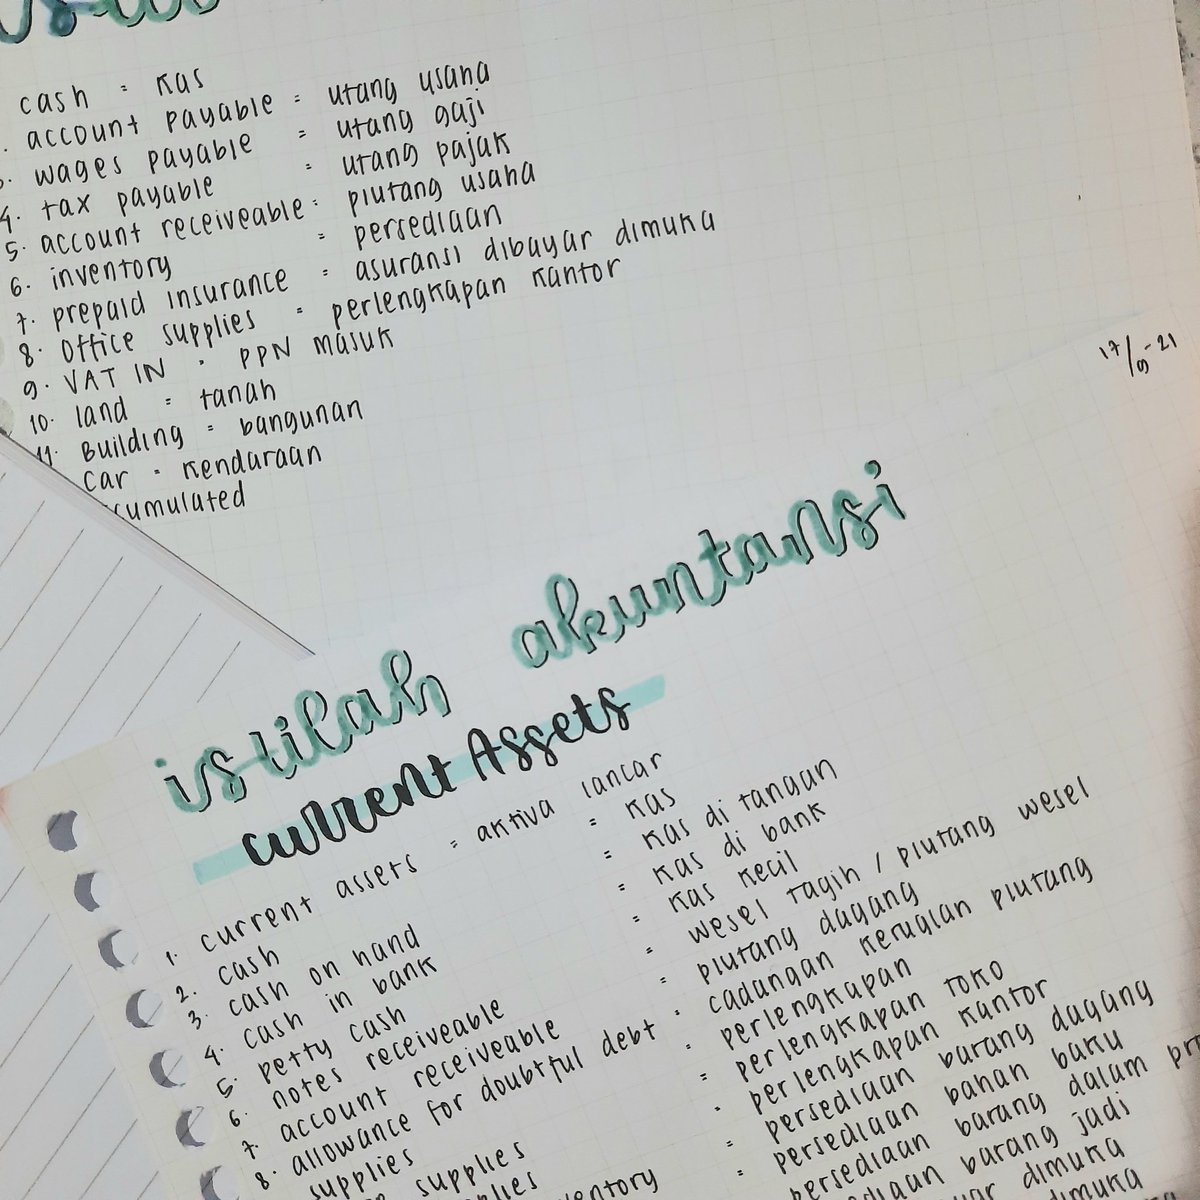 cash = kas
account payable = utang usaha
wages payable = utang gaji
4. tax payable = utang pajak
5. account receiveable = piutang usaha
6. inventory = persediaan
7. prepaid insurance = asuransi dibayar dimuka
8. office supplies = perlengkapan kantor
9. VAT IN = PPN masuk
10. land = tanah
11. Building = bangunan
car = kendaraan
cumulated
17/9-21
istilah akuntansi
current Assets
1. current assets = aktiva lancar
2. cash = kas
3. cash on hand = kas di tangan
4. cash in bank = kas di bank
5. petty cash = kas kecil
6. notes receiveable = wesel tagih / piutang wesel
7. account receiveable = piutang dagang
8. allowance for doubtful debt = cadangan kerugian piutang
supplies = perlengkapan
supplies = perlengkapan toko
perlengkapan kantor
ventory = persediaan barang dagang
= persediaan bahan baku
persediaan barang dalam pr
barang jadi
dimuka
dimuka